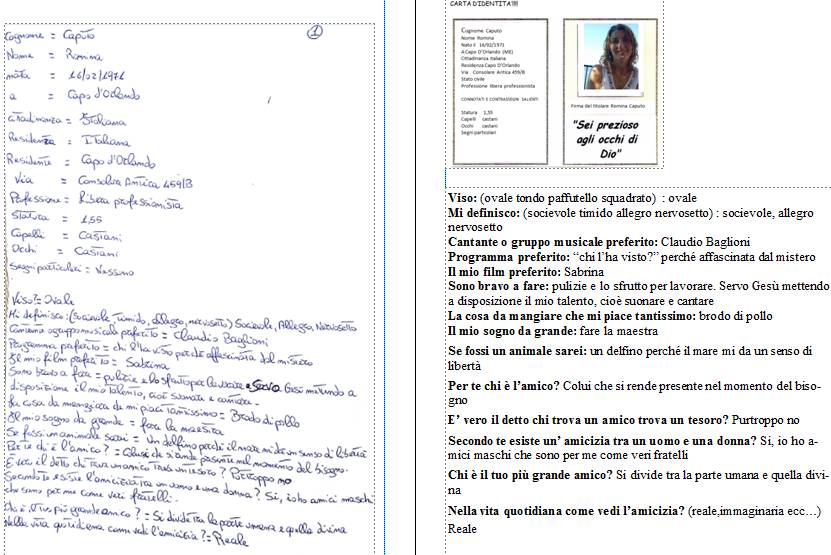 1
Cognome = Caputo
Nome = Romina
nata = 16/02/1971
a = Capo d'Orlando
cittadinanza = Italiana
Residenza = Italiana
Residente = Capo d'Orlando
Via = Consolare Antica 459/B
Professione = libera professionista
Statura = 1,55
Capelli = Castani
Occhi = Castani
Segni particolari = Nessuno
Viso? = Ovale
Mi definisco: (Socievole, timido, allegro, nervosetto) Socievole, Allegro, Nervosetto
Cantante o gruppo musicale preferito = Claudio Baglioni
Programma preferito = chi l'ha visto perché affascinata dal mistero
Il mio film preferito = Sabrina
Sono bravo a fare = pulizie e lo sfrutto per lavorare e Servo Gesù mettendo a
disposizione il mio talento, cioè suonare e cantare.
La cosa da mangiare che mi piace tantissimo = Brodo di pollo
Il mio sogno da grande = fare la maestra
Se fossi un animale sarei = un delfino perché il mare mi da un senso di libertà
Per te chi è l'amico? = Colui che si rende presente nel momento del bisogno.
È vero il detto chi trova un amico trova un tesoro? Purtroppo no
Secondo te esiste l'amicizia tra un uomo e una donna? Si, io ho amici maschi
che sono per me come veri fratelli.
Chi è il tuo più grande amico? = Si divide tra la parte umana e quella divina
Nella vita quotidiana come vedi l'amicizia? = Reale
CARTA D'IDENTITA'!!!!
Cognome Caputo
Nome Romina
Nato il 16/02/1971
A Capo D'Orlando (ME)
Cittadinanza Italiana
Residenza Capo D'Orlando
Via Consolare Antica 459/B
Stato civile
Professione libera professionista
CONNOTATI E CONTRASSEGNI SALIENTI
Statura 1,55
Capelli castani
Occhi castani
Segni particolari
Firma del titolare Romina Caputo
"Sei prezioso
agli occhi di
Dio"
Viso: (ovale tondo paffutello squadrato) : ovale
Mi definisco: (socievole timido allegro nervosetto) : socievole, allegro
nervosetto
Cantante o gruppo musicale preferito: Claudio Baglioni
Programma preferito: “chi l’ha visto?” perché affascinata dal mistero
Il mio film preferito: Sabrina
Sono bravo a fare: pulizie e lo sfrutto per lavorare. Servo Gesù mettendo
a disposizione il mio talento, cioè suonare e cantare
La cosa da mangiare che mi piace tantissimo: brodo di pollo
Il mio sogno da grande: fare la maestra
Se fossi un animale sarei: un delfino perché il mare mi da un senso di
libertà
Per te chi è l’amico? Colui che si rende presente nel momento del biso-
gno
E’ vero il detto chi trova un amico trova un tesoro? Purtroppo no
Secondo te esiste un’ amicizia tra un uomo e una donna? Si, io ho a-
mici maschi che sono per me come veri fratelli
Chi è il tuo più grande amico? Si divide tra la parte umana e quella divi-
na
Nella vita quotidiana come vedi l’amicizia? (reale,immaginaria ecc…)
Reale